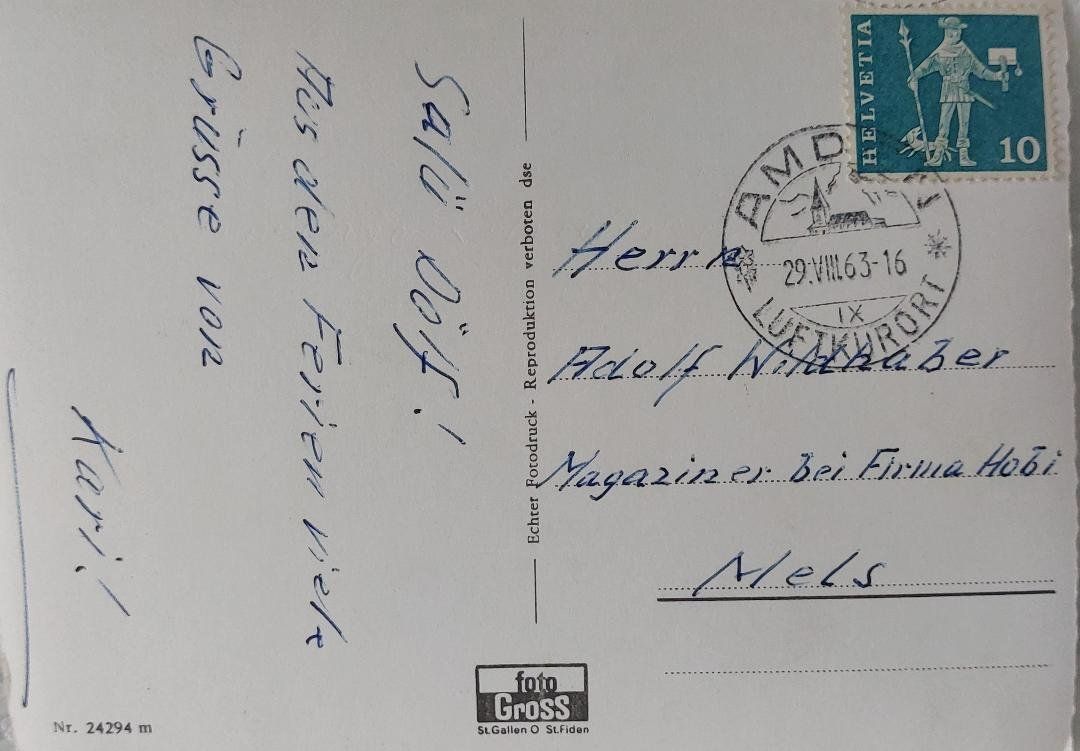 Salü Dölf!
Aus den Ferien viele
Grüsse von
Kari!
Echter Fotodruck - Reproduktion verboten dse
HELVETIA
10
AMDEN
29.VIII.63-16
IX
LUFTKURORT
Herrn
Adolf Wildhaber
Magaziner bei Firma Hobi
Mels
foto
Gross
St.Gallen O St.Fiden
Nr. 24294 m